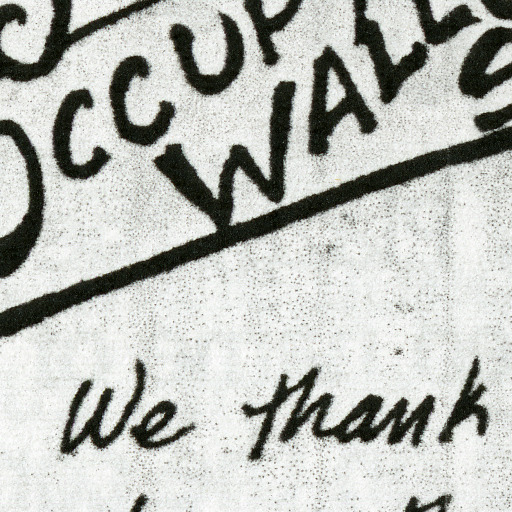 OCCUP
WALL S
We thank